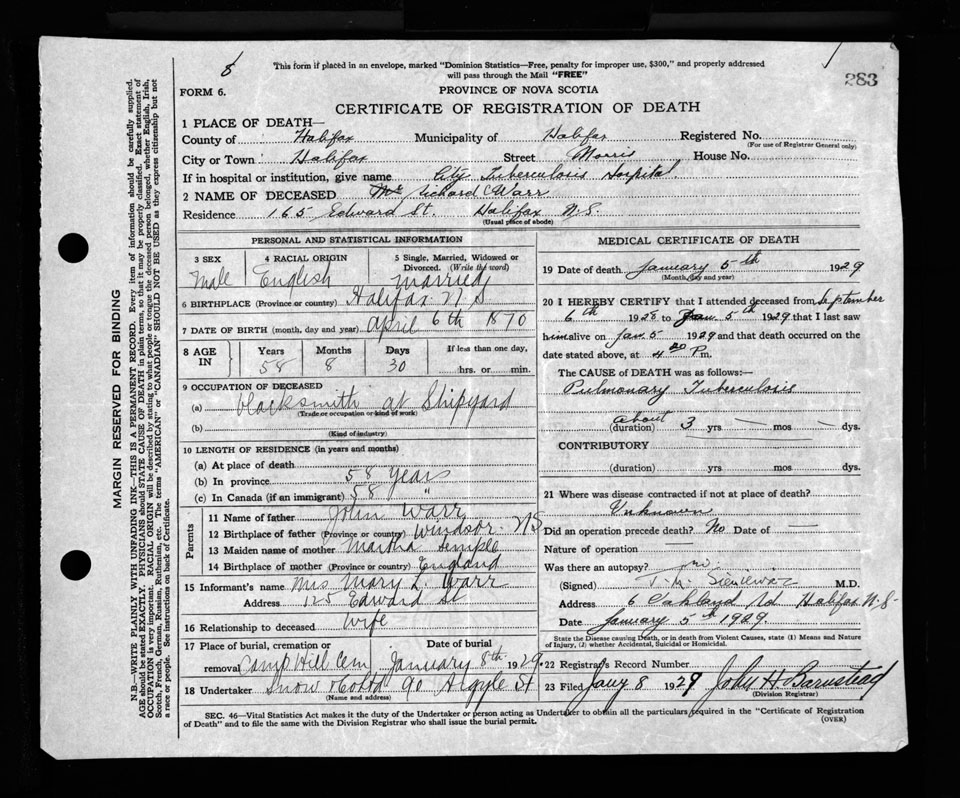 8
283
This form if placed in an envelope, marked "Dominion Statistics—Free, penalty for improper use, $300," and properly addressed
will pass through the Mail "FREE"
FORM 6.
PROVINCE OF NOVA SCOTIA
CERTIFICATE OF REGISTRATION OF DEATH
1 PLACE OF DEATH—
County of Halifax Municipality of Halifax Registered No.
(For use of Registrar General only)
City or Town Halifax Street Morris House No.
If in hospital or institution, give name City Tuberculosis Hospital.
2 NAME OF DECEASED Richard C Warr
Residence 165 Edward St. Halifax N.S.
(Usual place of abode)
PERSONAL AND STATISTICAL INFORMATION
3 SEX 4 RACIAL ORIGIN 5 Single, Married, Widowed or
Divorced. (Write the word)
Male English married
6 BIRTHPLACE (Province or country) Halifax N S
7 DATE OF BIRTH (month, day and year) April 6th 1870
8 AGE IN Years Months Days If less than one day,
58 8 30 hrs. or min.
9 OCCUPATION OF DECEASED
(a) blacksmith at Shipyard
(Trade or occupation or kind of work)
(b)
(Kind of industry)
10 LENGTH OF RESIDENCE (in years and months)
(a) At place of death
(b) In province 58 Years
(c) In Canada (if an immigrant) 58 "
Parents
11 Name of father John Warr
12 Birthplace of father (Province or country) Windsor N S
13 Maiden name of mother Martha Temple
14 Birthplace of mother (Province or country) England
15 Informant's name Mrs Mary L. Warr
Address 125 Edward St
16 Relationship to deceased Wife
17 Place of burial, cremation or Date of burial
removal Camp Hill Cem January 8th 1929.
18 Undertaker Snow & Co Ltd 90 Argyle St
(Name and address)
MEDICAL CERTIFICATE OF DEATH
19 Date of death January 5th 1929
(Month, day and year)
20 I HEREBY CERTIFY that I attended deceased from September
6th 1928 to Jan 5th 1929 that I last saw
him alive on Jan 5 1929 and that death occurred on the
date stated above, at 4 20 P m.
The CAUSE of DEATH was as follows:—
Pulmonary Tuberculosis
about
(duration) 3 yrs — mos — dys.
CONTRIBUTORY
(duration) yrs. mos. dys.
21 Where was disease contracted if not at place of death?
Unknown
Did an operation precede death? No Date of —
Nature of operation —
Was there an autopsy? no.
(Signed) M.D.
Address 6 Oakland Rd Halifax N.S.
Date January 5th 1929.
State the Disease causing Death, or in death from Violent Causes, state (1) Means and Nature
of Injury, (2) whether Accidental, Suicidal or Homicidal.
22 Registrar's Record Number
23 Filed Jany 8 1929 John H Barnstead
(Division Registrar)
SEC. 46—Vital Statistics Act makes it the duty of the Undertaker or person acting as Undertaker to obtain all the particulars required in the "Certificate of Registration
of Death" and to file the same with the Division Registrar who shall issue the burial permit.
(OVER)
MARGIN RESERVED FOR BINDING
N.B.—WRITE PLAINLY WITH UNFADING INK—THIS IS A PERMANENT RECORD. Every item of information should be carefully supplied.
AGE should be stated EXACTLY. PHYSICIANS should STATE CAUSE OF DEATH in plain terms, so that it may be properly classified. Exact statement of
OCCUPATION is very important. RACIAL ORIGIN will be described by stating to what people or tongue the deceased person belonged, whether English, Irish,
Scotch, French, German, Russian, Ruthenian, etc. The terms "AMERICAN" or "CANADIAN" SHOULD NOT BE USED as they express citizenship but not
a race or people. See instructions on back of Certificate.